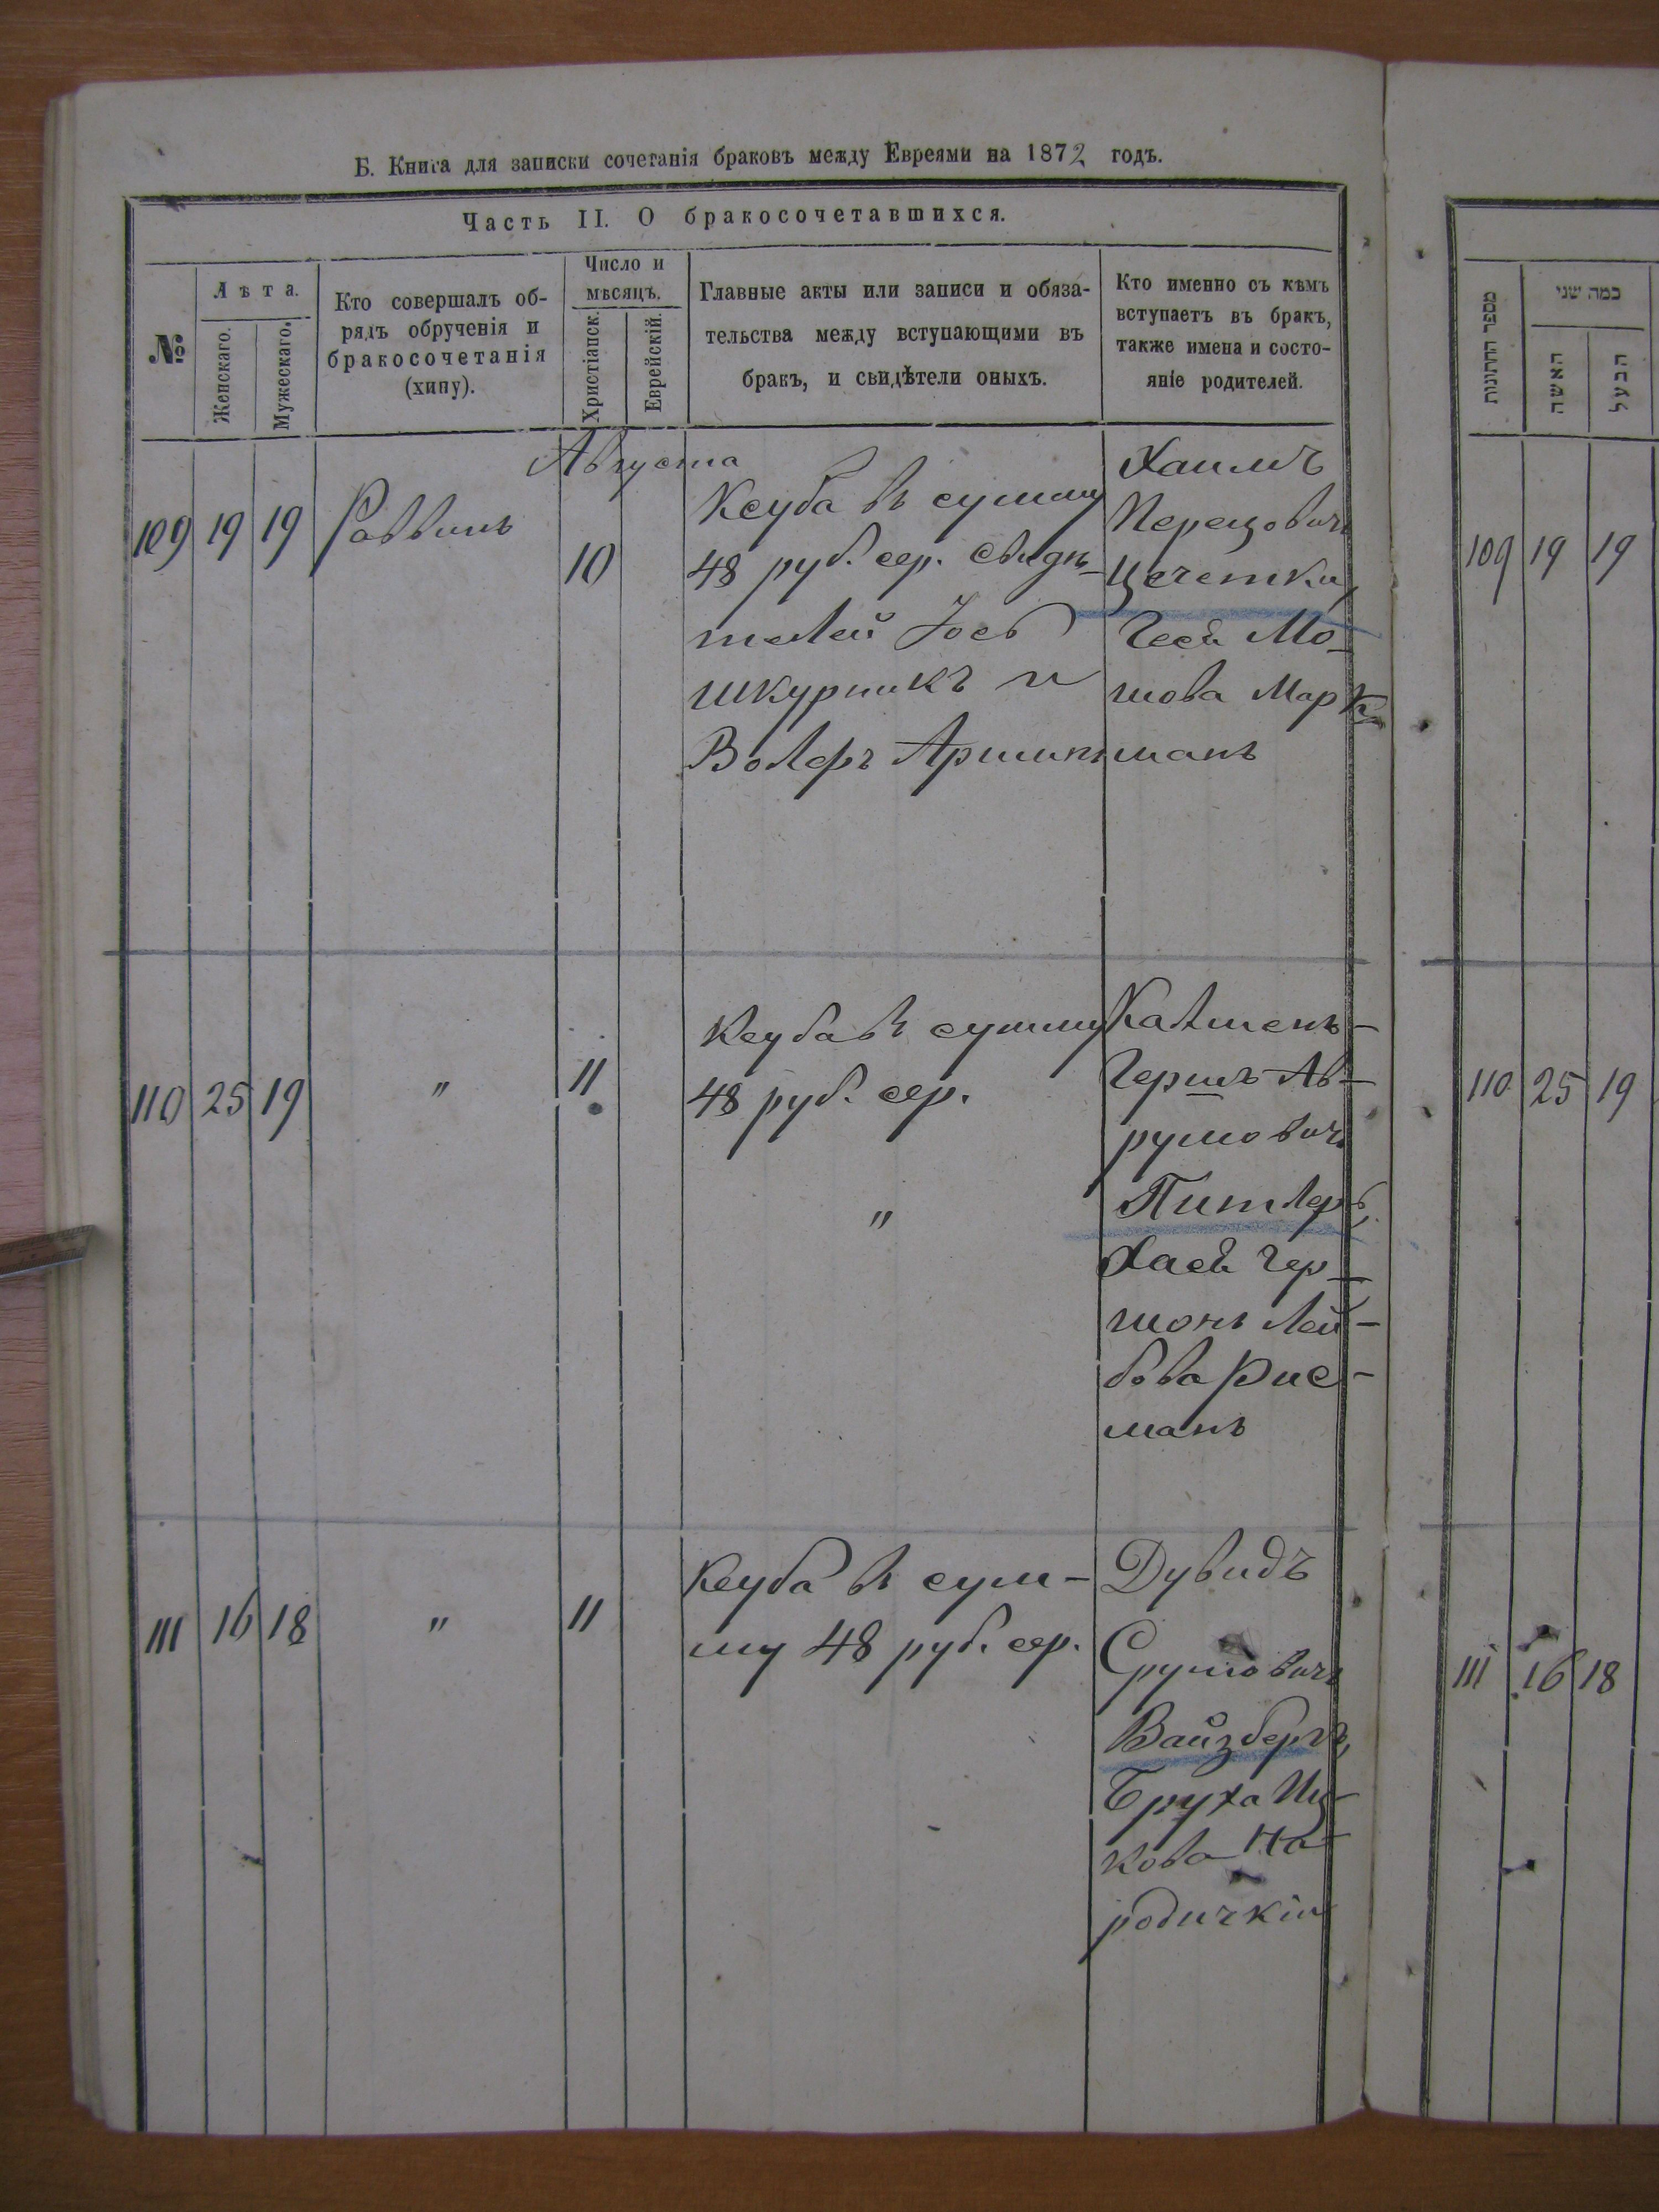 Б. Книга для записки сочетанія браковъ между Евреями на 1872 годъ.
Часть II. О бракосочетавшихся.
№
Лѣта.
Женскаго.
Мужескаго.
Кто совершалъ об-
рядъ обрученія и
бракосочетанія
(хипу).
Число и
мѣсяцъ.
Христіанск.
Еврейскій.
Главные акты или записи и обяза-
тельства между вступающими въ
бракъ, и свидѣтели оныхъ.
Кто именно съ кѣмъ
вступаетъ въ бракъ,
также имена и состо-
яніе родителей.
Августа
109 19 19 Раввинъ 10
Ксуба въ сумму
48 руб. сер. свидѣ-
телей Іось
Шкурникъ и
Волфъ
Хаимъ
Перецовичъ
Цечетка,
Геся Мо-
шова Марк
манъ
110 25 19 " 11
Ксуба въ сумму
48 руб. сер.
"
Калменъ-
Гершъ Ав-
румовичъ
Питлеръ,
Хася Гер-
шонъ Лей-
бова Рис-
манъ
111 16 18 " 11
Ксуба въ сум-
му 48 руб. сер.
Дувидъ
Срумовичъ
Вайзбергъ,
Бруха Иц-
кова На-
родичкій
מספר החתונות
כמה שני
האשה
הבעל
109 19 19
110 25 19
111 16 18